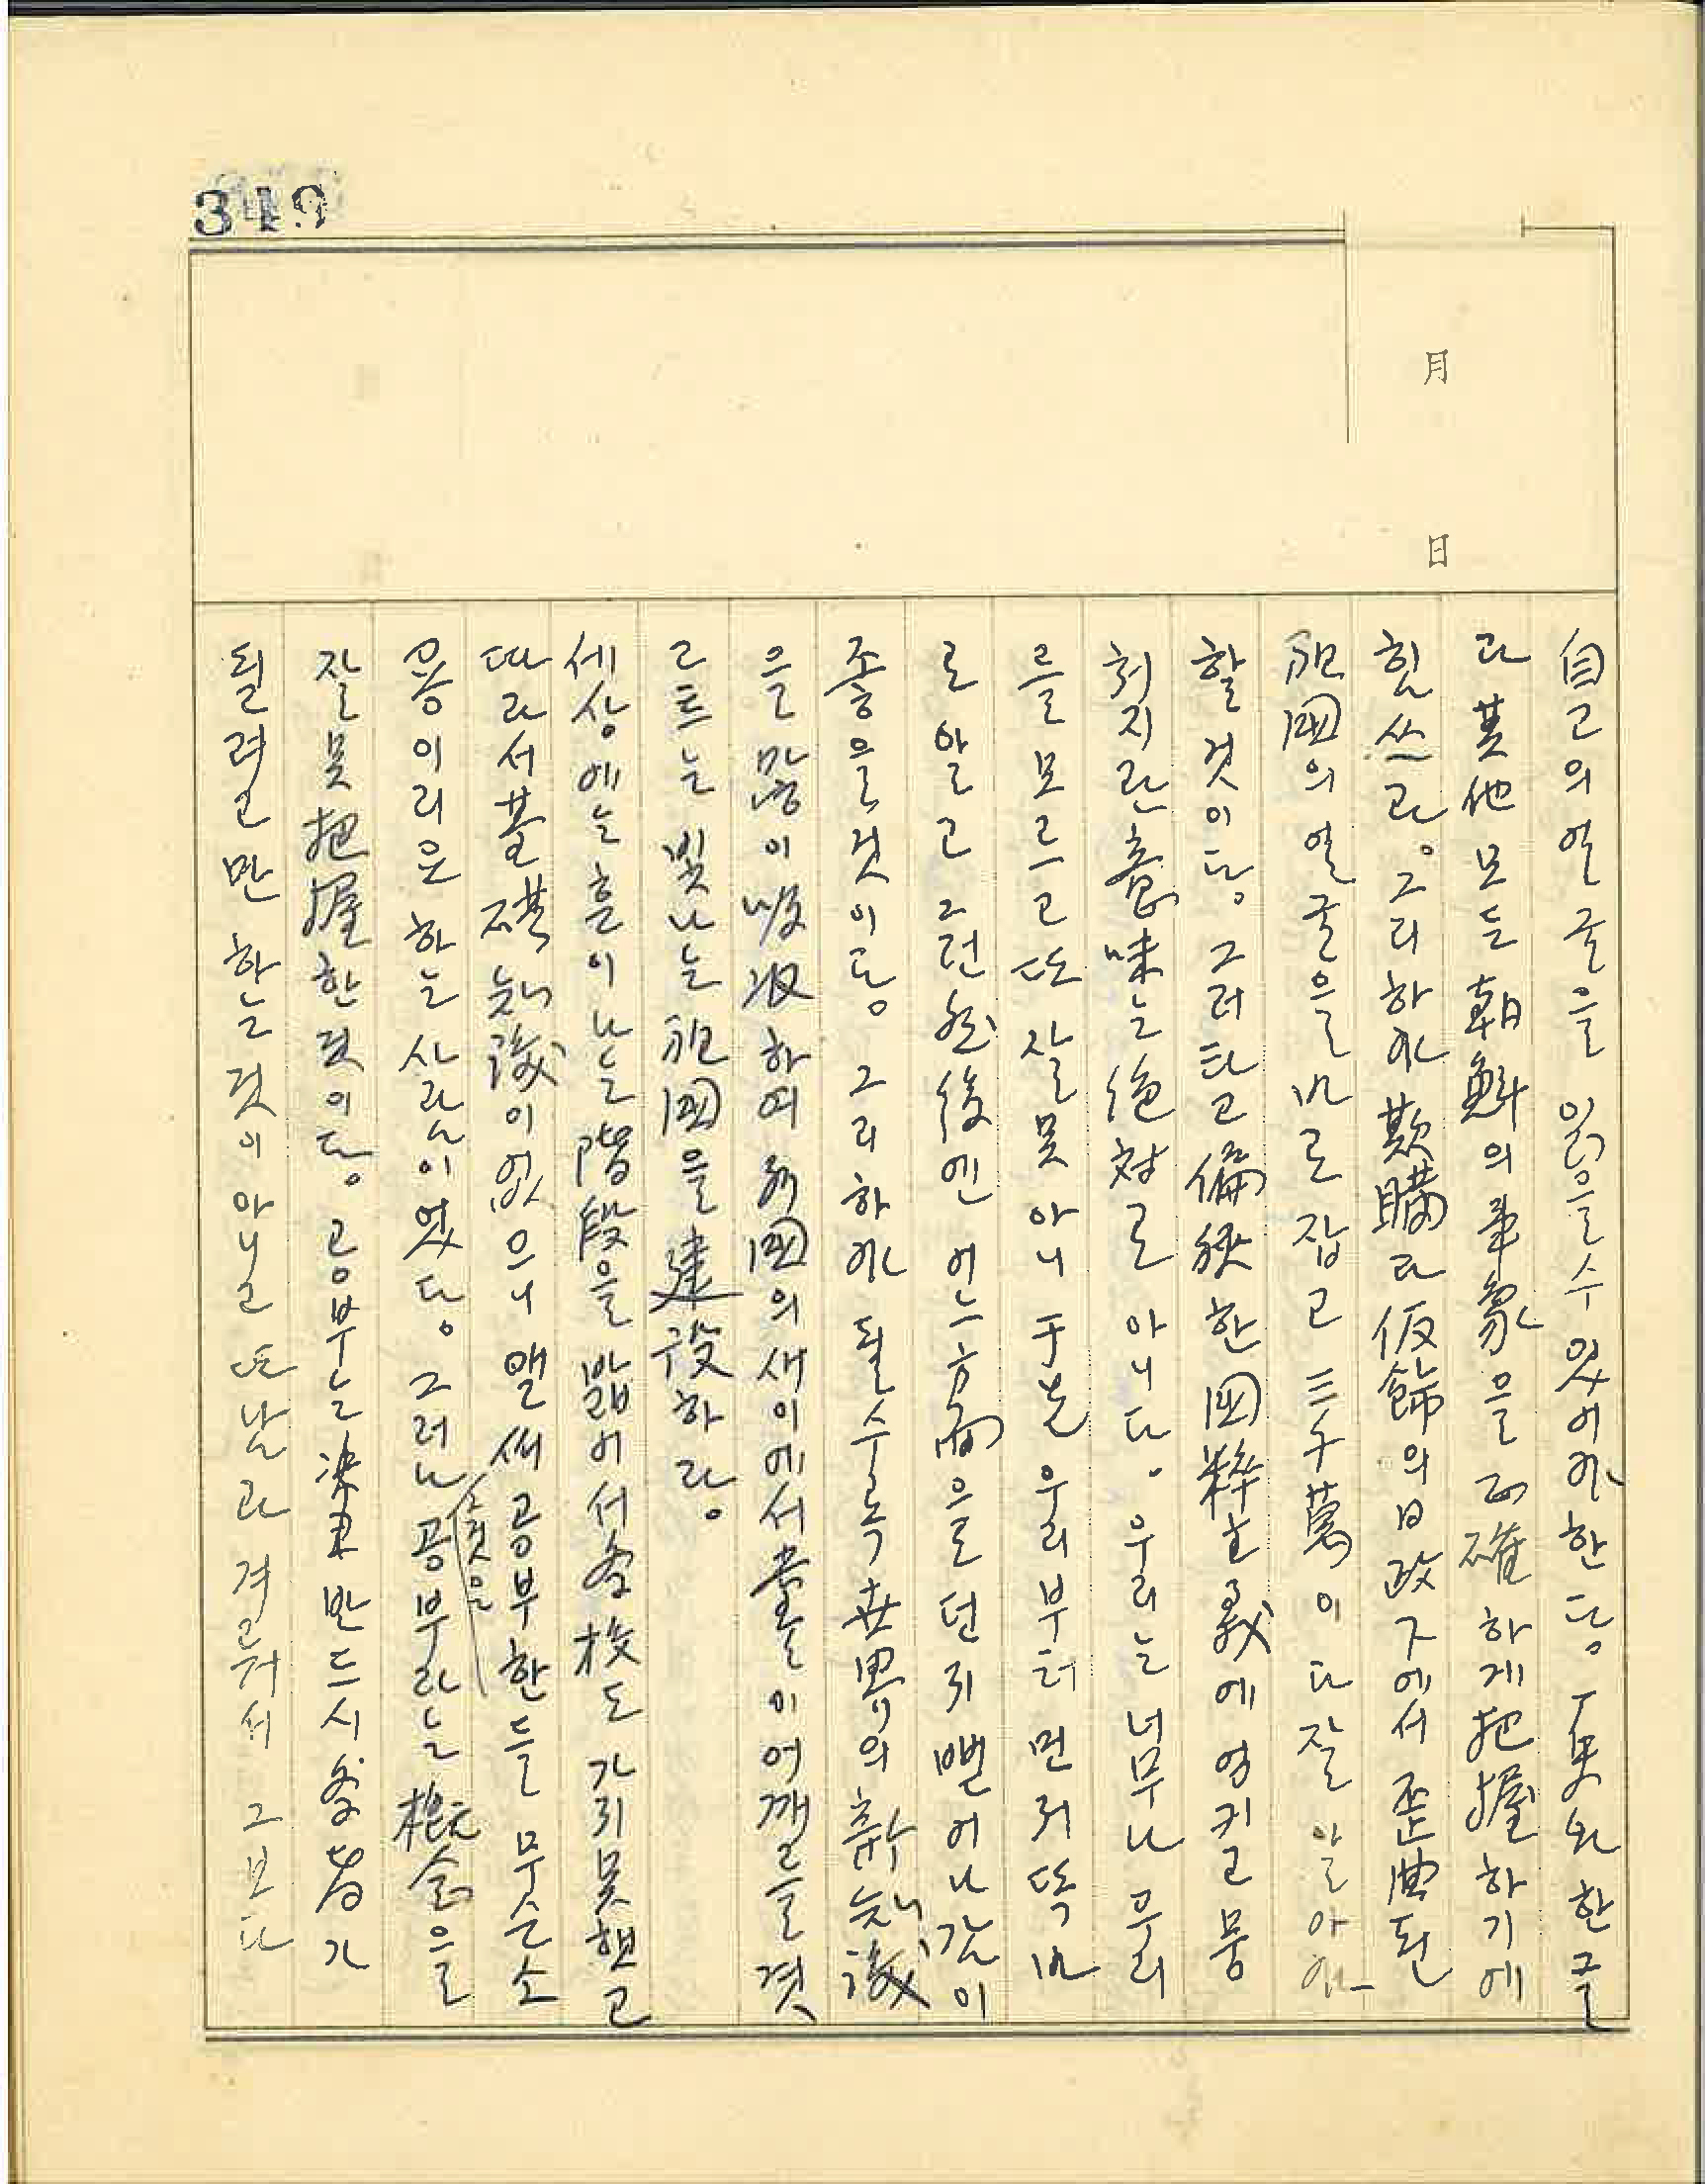 349
月
日
自고의 얼굴을 읽을수있어야한다. 历史와 한글
과 其他 모든 朝鮮의 事象을 正確하게 把握하기에
힘쓰라. 그리하야 欺瞞과 仮飾의 日政下에서 歪曲된
祖国의 얼굴을 바로잡고 三千萬이 다 잘 알아야
할것이다. 그러타고 偏狹한 国粹主義에 엉키고 뭉
취지란 意味는 絶対로 아니다. 우리는 너무나 우리
를 모르고 또 잘못아니 于先 우리부터 먼저 똑바
로 알고 그런 然後엔 어느 方面으로던지 뻗어나감이
좋을 것이다. 그리하야 될수록 世界의 新知識
을 많이 吸収하며 列国의 새이에서 끌이어깰들 겻
르트는 빛나는 祖国을 建設하라.
세상에는 흔이나는 階段을 밟어서 学校도 가지못했고
따라서 基礎知識이 없으니 맬써 공부한들 무슨 소
용이리요 하는 사람이였다. 그러나 공부라는 槪念을
것은
잘못 把握한 것이다. 공부는 決코 반드시 学者가
될려고만 하는것이 아니고 또 남과 겨눠서 그보다